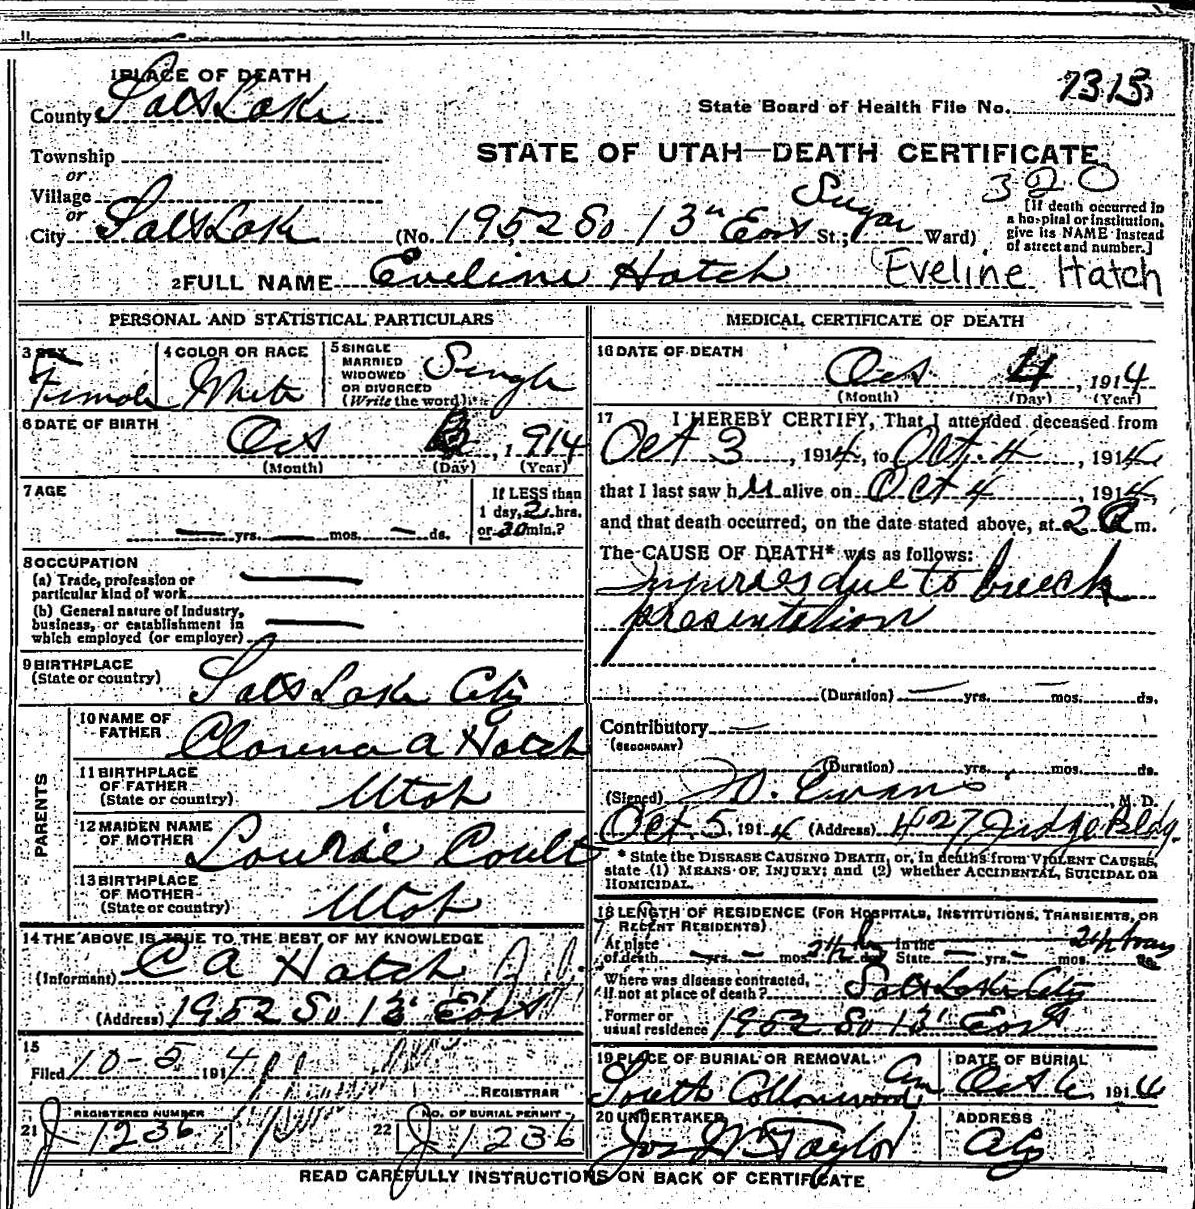 1 PLACE OF DEATH
County Salt Lake
State Board of Health File No. 7315
Township
or
Village
STATE OF UTAH—DEATH CERTIFICATE
320
or
City Salt Lake (No. 1952 So 13th East St.; Sugar Ward)
[If death occurred in a hospital or institution, give its NAME instead of street and number.]
2 FULL NAME Eveline Hatch (Eveline Hatch
PERSONAL AND STATISTICAL PARTICULARS
3 SEX Female
4 COLOR OR RACE White
5 SINGLE MARRIED WIDOWED OR DIVORCED (Write the word) Single
6 DATE OF BIRTH Oct , 1914
(Month) (Day) (Year)
7 AGE
If LESS than
1 day, 2 hrs.
yrs. mos. ds. or 30 min.?
8 OCCUPATION
(a) Trade, profession or
particular kind of work
(b) General nature of Industry,
business, or establishment in
which employed (or employer)
9 BIRTHPLACE
(State or country) Salt Lake City
PARENTS
10 NAME OF
FATHER Clarence A Hatch
11 BIRTHPLACE
OF FATHER
(State or country) Utah
12 MAIDEN NAME
OF MOTHER Coult
13 BIRTHPLACE
OF MOTHER
(State or country) Utah
14 THE ABOVE IS TRUE TO THE BEST OF MY KNOWLEDGE
(Informant) C A Hatch
(Address) 1952 So 13 East
15
Filed 10-5 1914
REGISTRAR
21 REGISTERED NUMBER
J 1236
22 NO. OF BURIAL PERMIT
J 1236
MEDICAL CERTIFICATE OF DEATH
16 DATE OF DEATH
Oct 4, 1914
(Month) (Day) (Year)
17 I HEREBY CERTIFY, That I attended deceased from
Oct 3, 1914, to Oct. 4, 1914,
that I last saw h alive on Oct 4, 1914,
and that death occurred, on the date stated above, at 2 a m.
The CAUSE OF DEATH* was as follows:
Injuries due to breech
presentation
(Duration) yrs. mos. ds.
Contributory
(SECONDARY)
(Duration) yrs. mos. ds.
(Signed) Evans, M. D.
Oct. 5, 1914 (Address) 427 Judge Bldg.
* State the DISEASE CAUSING DEATH, or, in deaths from VIOLENT CAUSES,
state (1) MEANS OF INJURY; and (2) whether ACCIDENTAL, SUICIDAL OR
HOMICIDAL.
18 LENGTH OF RESIDENCE (FOR HOSPITALS, INSTITUTIONS, TRANSIENTS, OR
RECENT RESIDENTS)
At place In the
of death yrs. mos. State yrs. mos. ds.
Where was disease contracted,
if not at place of death? Salt Lake City
Former or
usual residence 1952 So 13 East
19 PLACE OF BURIAL OR REMOVAL
South Cottonwood Cem
DATE OF BURIAL
Oct 6, 1914
20 UNDERTAKER
Jos Wm Taylor
ADDRESS
City
READ CAREFULLY INSTRUCTIONS ON BACK OF CERTIFICATE